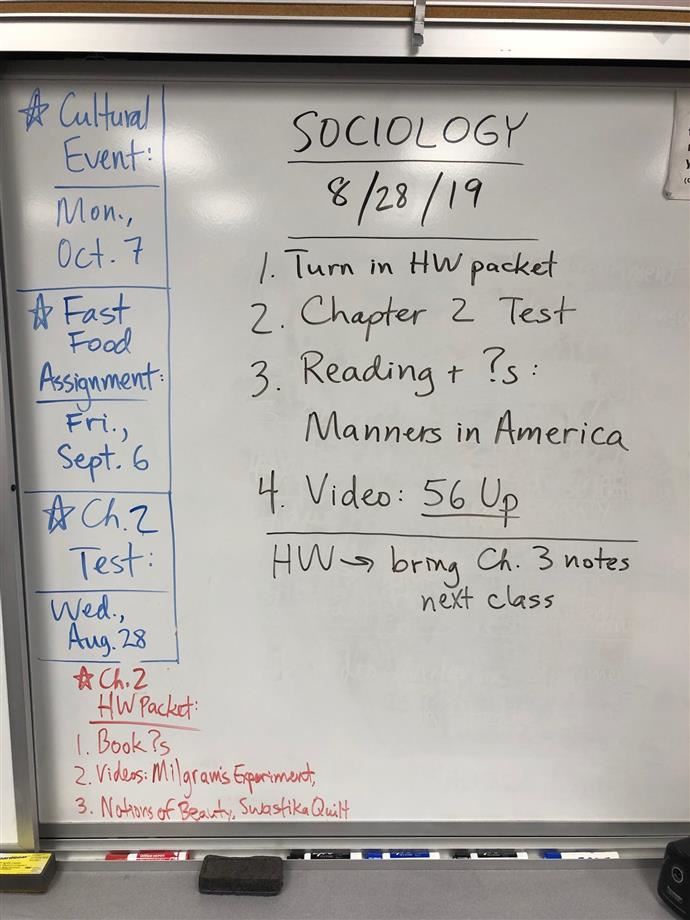 ☆ Cultural
Event:
Mon.,
Oct. 7
☆ Fast
Food
Assignment:
Fri.,
Sept. 6
☆ Ch. 2
Test:
Wed.,
Aug. 28
☆ Ch. 2
HW Packet:
1. Book ?s
2. Videos: Milgram's Experiment,
3. Notions of Beauty, Swastika Quilt
SOCIOLOGY
8/28/19
1. Turn in HW packet
2. Chapter 2 Test
3. Reading + ?s:
Manners in America
4. Video: 56 Up
HW → bring Ch. 3 notes
next class